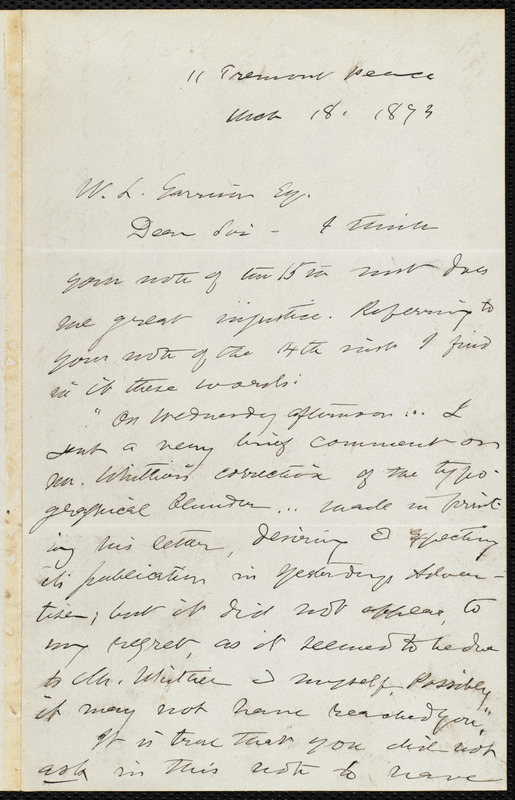 11 Tremont Place
Mch 18. 1873
W. L. Garrison Esq.
Dear Sir – I think
your note of the 15th inst does
me great injustice. Referring to
your note of the 14th inst I find
in it these words:
"On Wednesday afternoon ... I
sent a very brief comment on
Mr. Whittier's correction of the typo-
graphical blunder ... made in print-
ing his letter, desiring & expecting
its publication in Yesterday's Adver-
tiser; but it did not appear, to
my regret, as it seemed to be due
to Mr. Whittier & myself. Possibly
it may not have reached you."
It is true that you did not
ask in this note to have